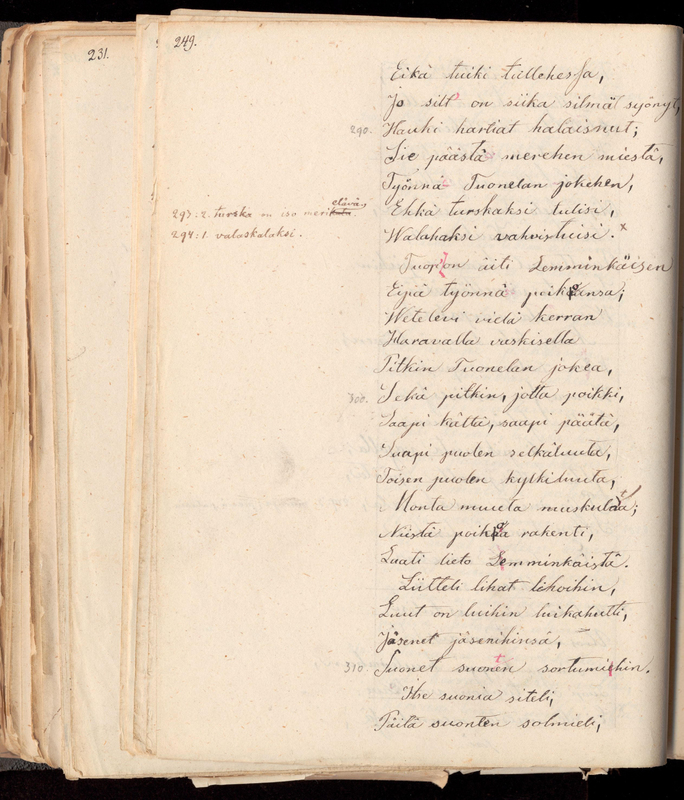 231.
249.
Eikä tuiki tullehessa,
Jo silt' on siika silmät syönyt,
290. Hauki hartiat halaisnut;
Sie päästä merehen miestä,
Työnnä Tuonelan jokehen,
Ehkä turskaksi tulisi,
Walahaksi vahvistuisi. x
293: 2. turska on iso merikala eläviä.
294: 1. valaskalaksi.
Tuop' on äiti Lemminkäisen
Eipä työnnä poikoansa;
Wetelevi vielä kerran
Haravalla vaskisella
Pitkin Tuonelan jokea,
300. Sekä pitkin, jotta poikki,
Saapi kättä, saapi päätä,
Saapi puolen selkäluuta,
Toisen puolen kylkiluuta,
Monta muuta muskulata;
Niistä poikoa rakenti,
Laati lieto Lemminkäistä.
Liitteli lihat lihoihin,
Luut on luihin luikahutti,
Jäsenet jäsenihinsä,
310. Suonet suonten sortumihin.
Itse suonia siteli,
Päitä suonten solmieli,